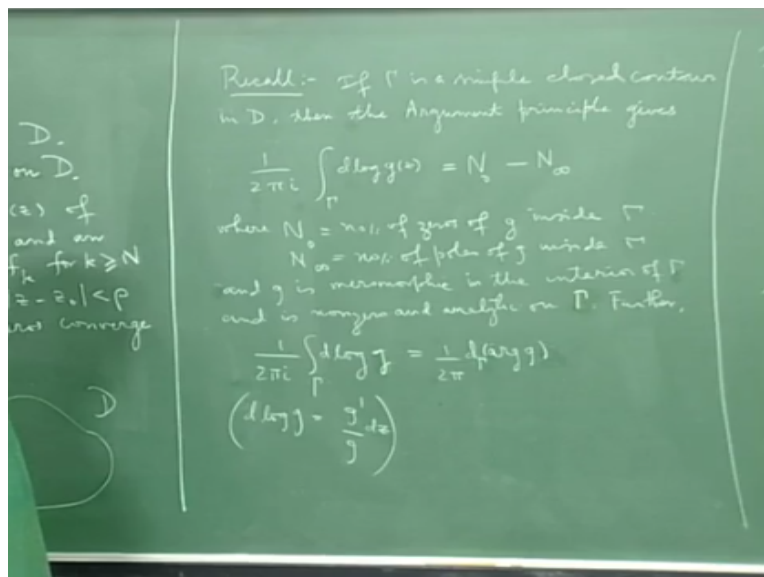 D.
on D.
(z) of
and an
f_k for k ≥ N
|z - z_0| < ρ
converge
D
Recall:- If Γ is a simple closed contour
in D, then the Argument principle gives
1/(2πi) ∫_Γ d log g(z) = N_0 - N_∞
where N_0 = no/: of zeros of g inside Γ
N_∞ = no/: of poles of g inside Γ
and g is meromorphic in the interior of Γ
and is nonzero and analytic on Γ. Further,
1/(2πi) ∫_Γ d log g = 1/(2π) d_Γ(arg g)
(d log g = g'/g dz)